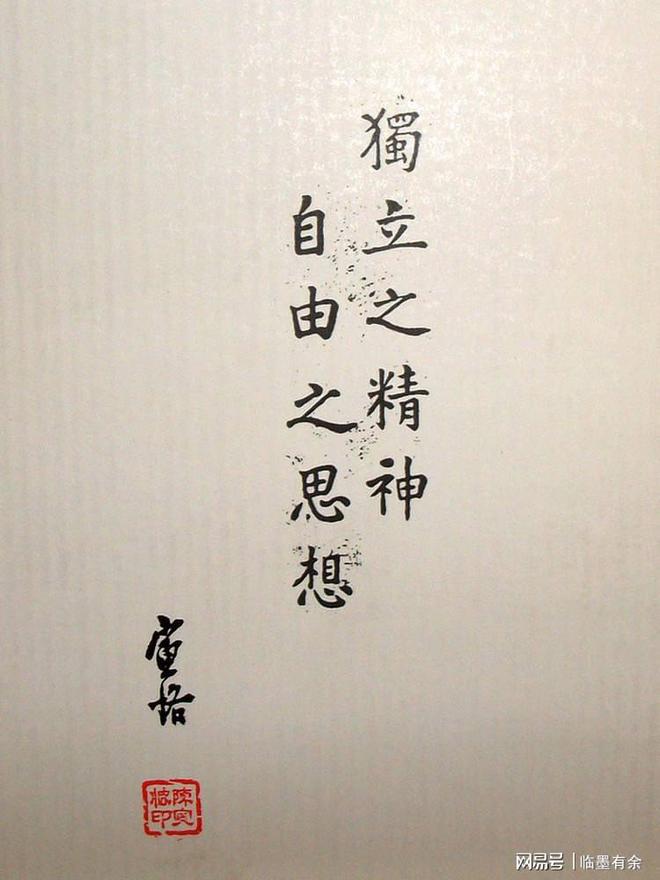 獨立之精神
自由之思想
寅恪
陳寅恪印
网易号 | 临墨有余